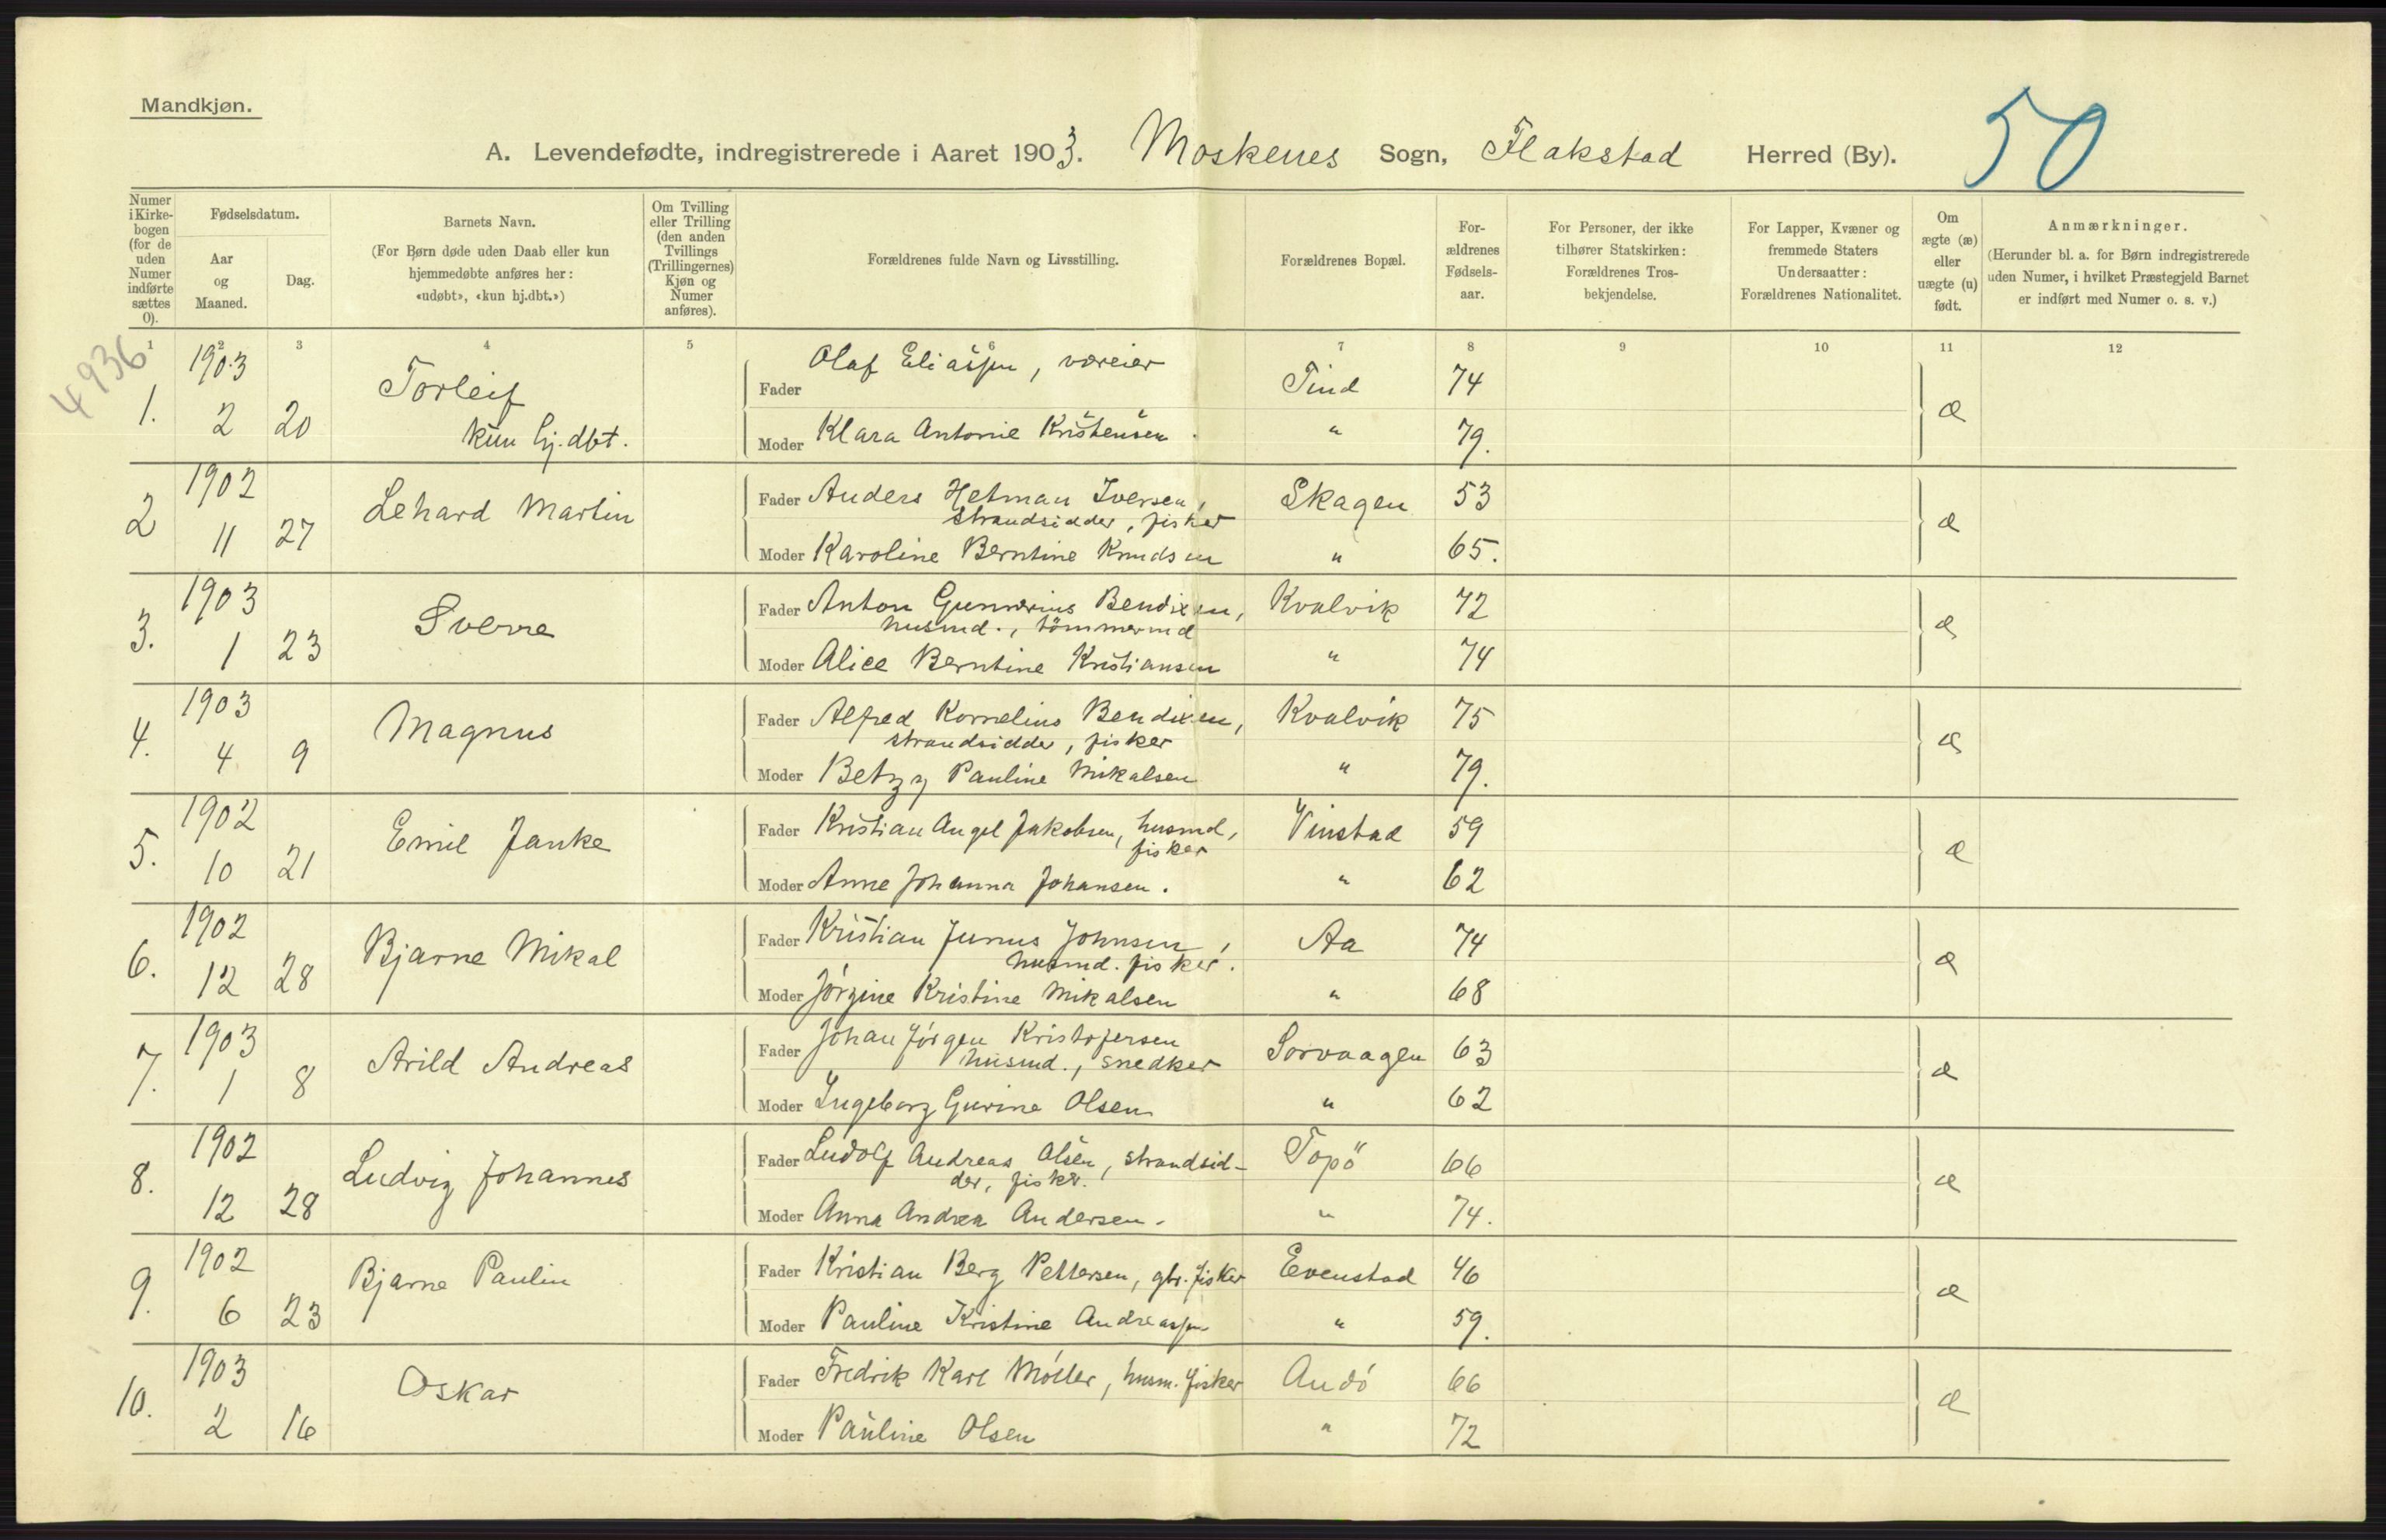 Mandkjøn.
A. Levendefødte, indregistrerede i Aaret 1903. Moskenes Sogn, Flakstad Herred (By).
50
Numer i Kirkebogen (for de uden Numer indførte sættes 0).
Fødselsdatum.
Aar og Maaned.
Dag.
Barnets Navn.
(For Børn døde uden Daab eller kun hjemmedøbte anføres her: «udøbt», «kun hj.dbt.»)
Om Tvilling eller Trilling (den anden Tvillings (Trillingernes) Kjøn og Numer anføres).
Forældrenes fulde Navn og Livsstilling.
Forældrenes Bopæl.
For-ældrenes Fødsels-aar.
For Personer, der ikke tilhører Statskirken: Forældrenes Tros-bekjendelse.
For Lapper, Kvæner og fremmede Staters Undersaatter: Forældrenes Nationalitet.
Om ægte (æ) eller uægte (u) født.
Anmærkninger.
(Herunder bl. a. for Børn indregistrerede uden Numer, i hvilket Præstegjeld Barnet er indført med Numer o. s. v.)
1 2 3 4 5 6 7 8 9 10 11 12
4936
1. 1903 2 20 Torleif kun hj.dbt.
Fader Olaf Eliassen, væreier Tind 74 æ
Moder Klara Antonie Kristensen. " 79.
2 1902 11 27 Lehard Martin
Fader Anders Hetman Iversen, Skagen 53 æ
strandsidder, fisker
Moder Karoline Berntine Knudsen " 65.
3. 1903 1 23 Sverre
Fader Anton Gunnerius Bendixen, Kvalvik 72 æ
husmd., tömmermd
Moder Alice Berntine Kristiansen " 74
4. 1903 4 9 Magnus
Fader Alfred Kornelius Bendixen, Kvalvik 75 æ
strandsidder, fisker
Moder Betzy Pauline Mikalsen " 79.
5. 1902 10 21 Emil Janke
Fader Kristian Angel Jakobsen, husmd, Vinstad 59 æ
fisker
Moder Anne Johanna Johansen. " 62
6. 1902 12 28 Bjarne Mikal
Fader Kristian Junus Johnsen, Aa 74 æ
husmd. fisker.
Moder Jörgine Kristine Mikalsen " 68
7. 1903 1 8 Arild Andreas
Fader Johan Jörgen Kristofersen Sorvaagen 63 æ
husmd., snedker
Moder Ingeborg Gurine Olsen " 62
8. 1902 12 28 Ludvig Johannes
Fader Ludolf Andreas Olsen, strandsid- Topö 66 æ
der, fisker.
Moder Anna Andrea Andersen. " 74.
9. 1902 6 23 Bjarne Paulin
Fader Kristian Berg Pettersen, gbr. fisker Evenstad 46 æ
Moder Pauline Kristine Andreassen " 59.
10. 1903 2 16 Oskar
Fader Fredrik Karl Möller, husm. fisker Andö 66 æ
Moder Pauline Olsen " 72